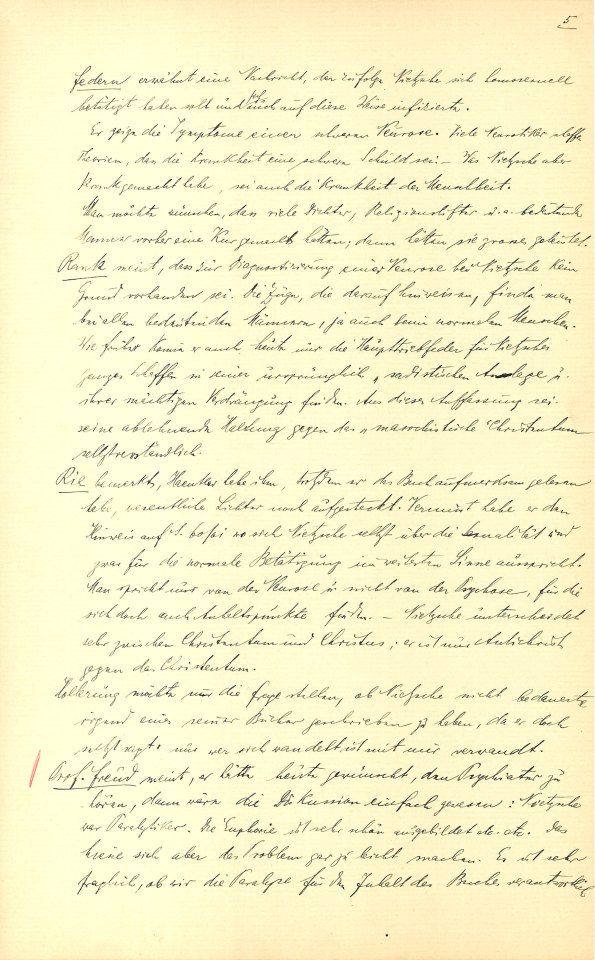 5
Federn erwähnt eine Nachricht, der zufolge Nietzsche sich homosexuell
betätigt haben soll und sich auch auf diese Weise infizierte.
Er zeige die Symptome einer schweren Neurose. Viele Neurotiker
Theorien, dass die Krankheit eine schwere Schuld sei. – Was Nietzsche aber
krank gemacht habe, sei auch die Krankheit der Menschheit.
Man möchte wünschen, dass viele Dichter, Religionsstifter u. a. bedeutende
Männer vorher eine Kur gemacht hätten; dann hätten sie grosses geleistet.
Rank meint, dass zur Diagnostizierung einer Neurose bei Nietzsche kein
Grund vorhanden sei. Die Züge, die darauf hinweisen, finde man
bei allen bedeutenden Männern, ja auch beim normalen Menschen.
Wie früher könne er auch heute nur die Haupttriebfeder für Nietzsches
ganzes Schaffen in seiner ursprünglich „sadistischen Anlage u.
ihrer mächtigen Verdrängung finden. Aus dieser Auffassung sei
seine ablehnende Haltung gegen das „masochistische" Christentum
selbstverständlich.
Rie bemerkt, Haeutler habe ihm, trotzdem er das Buch aufmerksam gelesen
habe, wesentliche Lichter noch aufgesteckt. Vermisst habe er den
Hinweis auf S. wo sich Nietzsche selbst über die Sexualität und
zwar für die normale Betätigung im weitesten Sinne ausspricht.
Man spricht nur von der Neurose u. nicht von der Psychose, für die
sich doch auch Anhaltspunkte finden. – Nietzsche unterscheidet
sehr zwischen Christentum und Christus; er ist nur Antichrist
gegen das Christentum.
Hollerung möchte nur die Frage stellen, ob Nietzsche nicht bedauerte
irgend eines seiner Bücher geschrieben zu haben, da er doch
selbst sagt: nur wer sich wandelt ist mit mir verwandt.
Prof. Freud meint, er hätte heute gewünscht, den Psychiater zu
hören, dann wäre die Diskussion einfach gewesen: Nietzsche
war Paralytiker. Die Euphorie ist sehr schön ausgebildet etc. etc. Das
hiesse sich aber das Problem gar zu leicht machen. Es ist sehr
fraglich, ob wir die Paralyse für den Inhalt des Buches verantwortlich